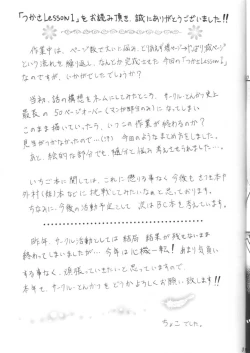 「つかさLesson1」をお読み頂き、誠にありがとうございました!!
作業中は、ページ数で大いに悩み、
という流れを繰り返し、なんとか完成できた今回の「つかさLesson1」
なのですが、いかがでしたでしょうか?
当初、話の構想をネームにしてみたところ、サークルとんかつ史上
最長の50ページオーバー(マンガ部分のみ)になってしまい
このまま描いていったら、いつこの作業が終わるのか?
見当がつかなかったので…(汗)今回のようなまとめ方をしました。
あと、絵的な部分でも、
いちご本に関しては、これに懲りる事なく今後も
などに挑戦してみたいなぁと思っております。
ちなみに、今後の活動予定として
昨年、サークル活動としては結局結果が残せないまま
終わってしまいましたが…今年は心機一転!あまり気負い
する事なく、頑張っていきたいと思っていますので、
本年も、サークルとんかつをどうかよろしくお願い致します!!
ちょこでした。